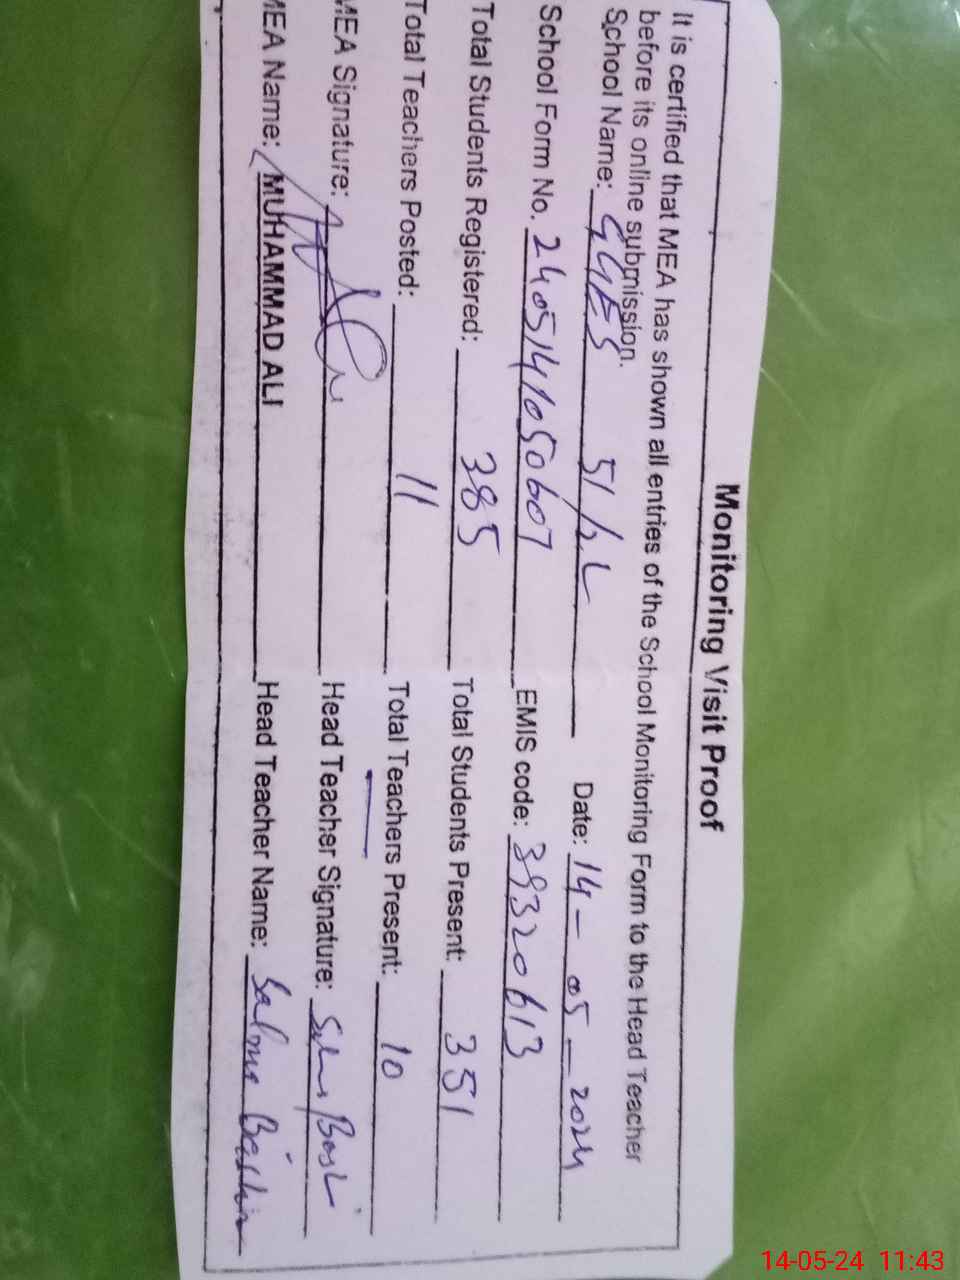 Monitoring Visit Proof
It is certified that MEA has shown all entries of the School Monitoring Form to the Head Teacher
before its online submission.
School Name: GGES 51/2L Date: 14-05-2024
School Form No. 2405141050607 EMIS code: 39320613
Total Students Registered: 385 Total Students Present: 351
Total Teachers Posted: 11 Total Teachers Present: 10
MEA Signature: Head Teacher Signature:
MEA Name: MUHAMMAD ALI Head Teacher Name: Salma Bashir
14-05-24 11:43